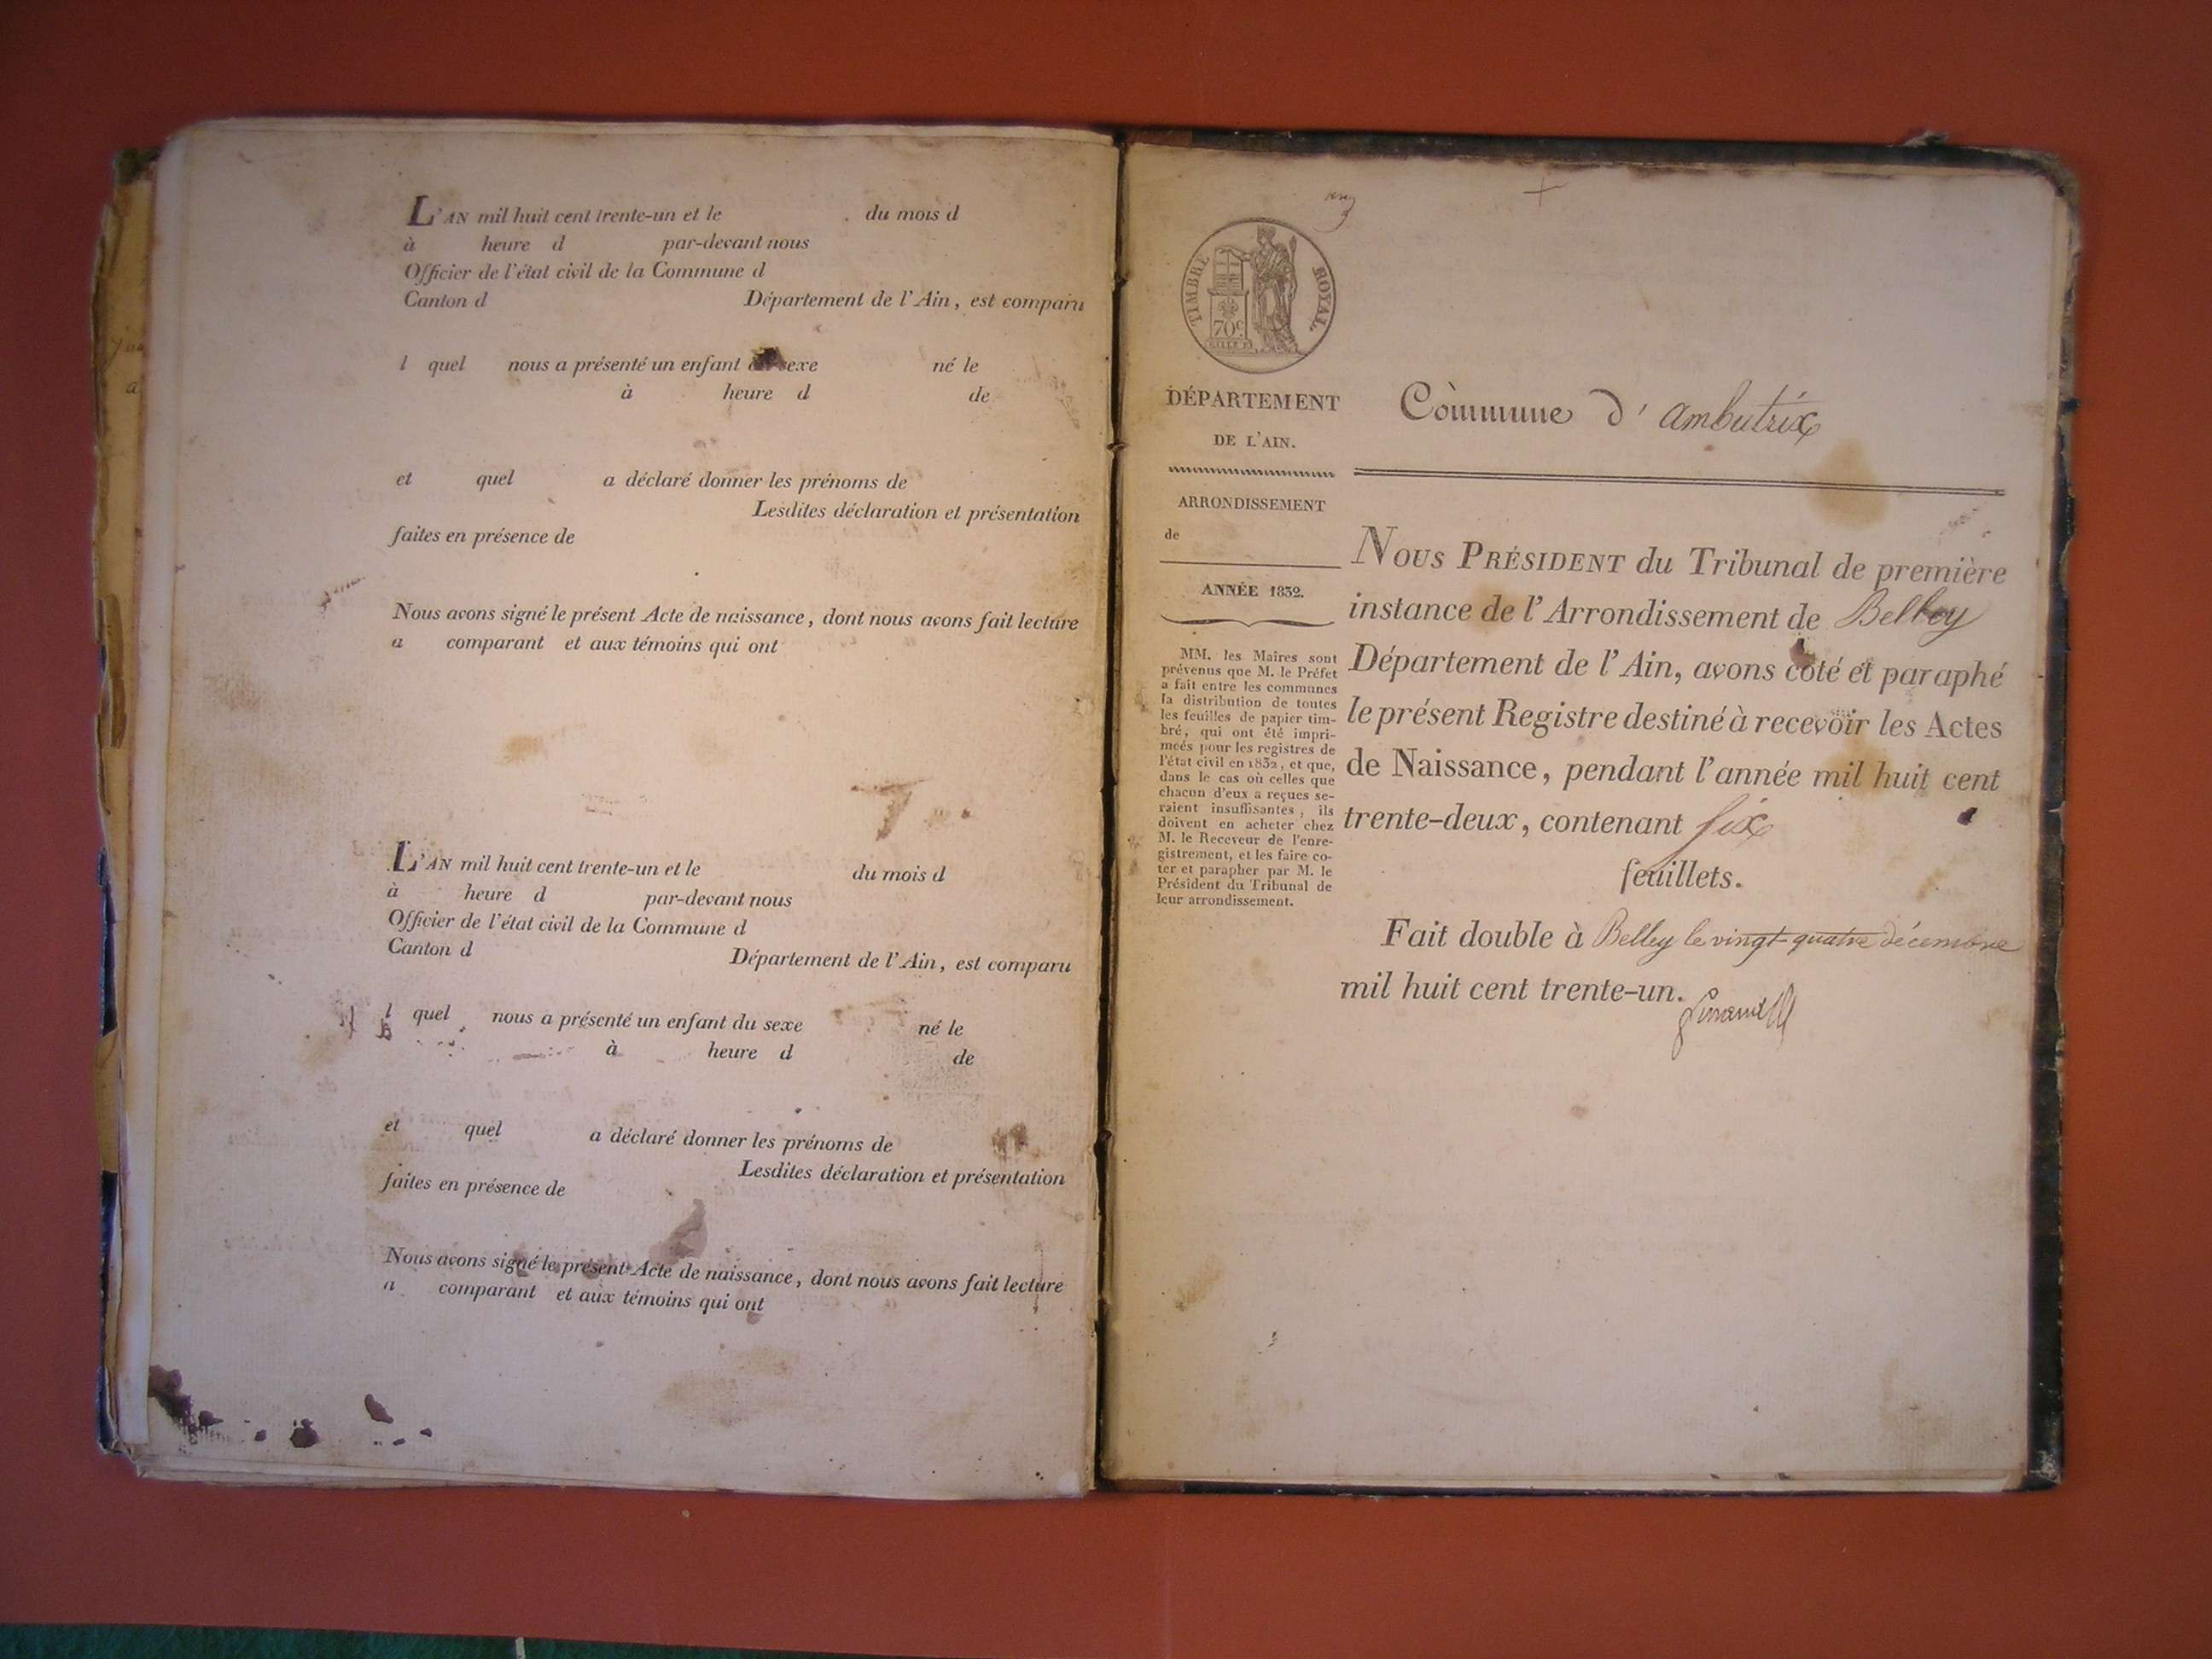 L'AN mil huit cent trente-un et le du mois d
à heure d par-devant nous
Officier de l'état civil de la Commune d
Canton d Département de l'Ain, est comparu
l quel nous a présenté un enfant sexe né le
à heure d de
et quel a déclaré donner les prénoms de
Lesdites déclaration et présentation
faites en présence de
Nous avons signé le présent Acte de naissance, dont nous avons fait lecture
a comparant et aux témoins qui ont
L'AN mil huit cent trente-un et le du mois d
à heure d par-devant nous
Officier de l'état civil de la Commune d
Canton d Département de l'Ain, est comparu
l quel nous a présenté un enfant du sexe né le
à heure d de
et quel a déclaré donner les prénoms de
Lesdites déclaration et présentation
faites en présence de
Nous avons signé le présent Acte de naissance, dont nous avons fait lecture
a comparant et aux témoins qui ont
TIMBRE ROYAL.
70c
DÉPARTEMENT
DE L'AIN.
ARRONDISSEMENT
de
ANNÉE 1832.
MM. les Maires sont
prévenus que M. le Préfet
a fait entre les communes
la distribution de toutes
les feuilles de papier tim-
bré, qui ont été impri-
meés pour les registres de
l'état civil en 1832, et que,
dans le cas où celles que
chacun d'eux a reçues se-
raient insuffisantes, ils
doivent en acheter chez
M. le Receveur de l'enre-
gistrement, et les faire co-
ter et parapher par M. le
Président du Tribunal de
leur arrondissement.
Commune d'ambutrix
NOUS PRÉSIDENT du Tribunal de première
instance de l'Arrondissement de Belley
Département de l'Ain, avons coté et paraphé
le présent Registre destiné à recevoir les Actes
de Naissance, pendant l'année mil huit cent
trente-deux, contenant six
feuillets.
Fait double à Belley le vingt-quatre décembre
mil huit cent trente-un.